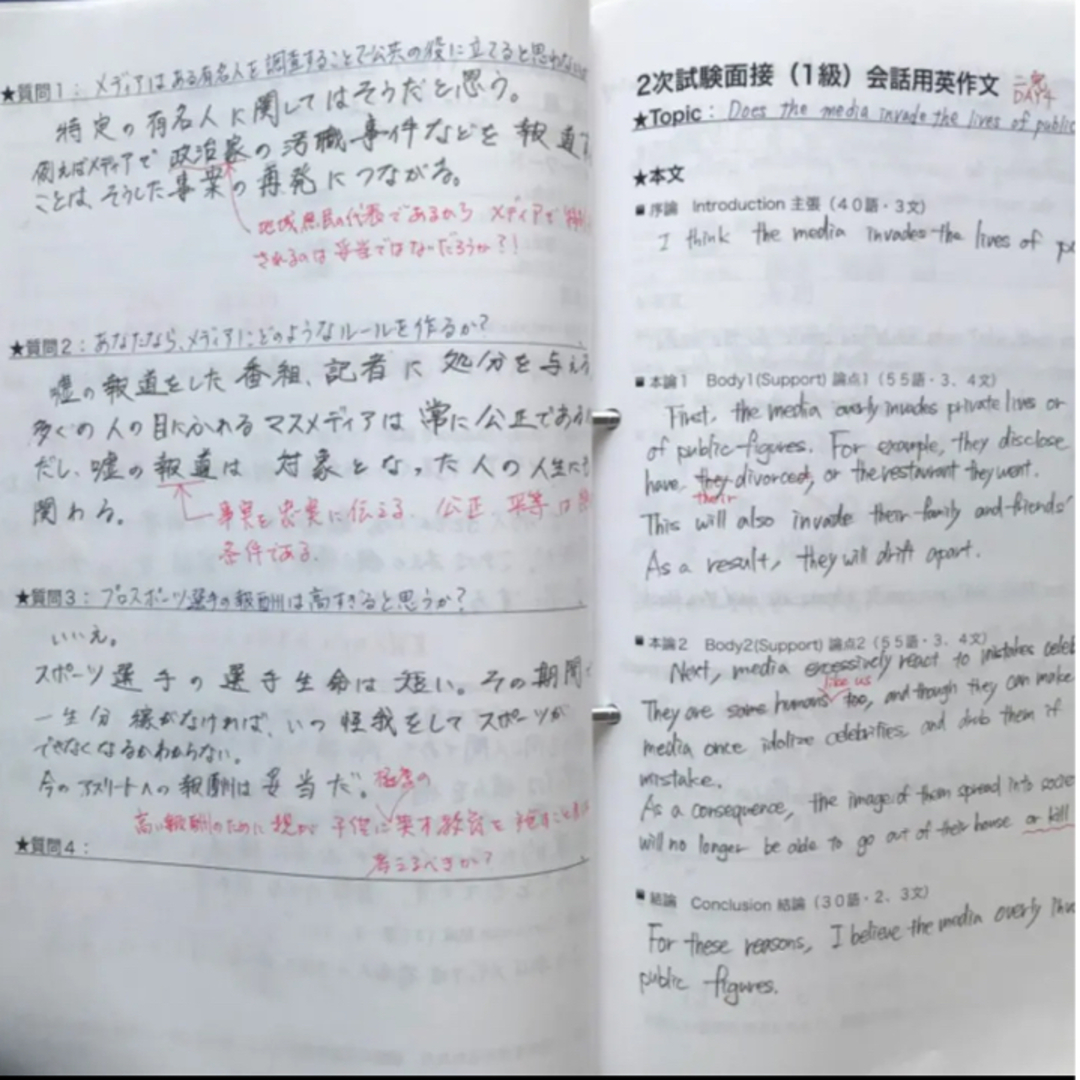 ★質問1：メディアはある有名人を調査することで公共の役に立てると思わないか
特定の有名人に関してはそうだと思う。
例えばメディアで政治家の汚職事件などを報道す
ことは、そうした事案の再発につながる。
地域住民の代表であるから メディアで
されるのは妥当ではないだろうか?!
★質問2：あなたなら、メディアにどのようなルールを作るか?
嘘の報道をした番組、記者に処分を与える
多くの人の目にふれるマスメディアは常に公正である
だし、嘘の報道は対象となった人の人生にも
関わる。
事実を忠実に伝える 公正 平等は
条件である
★質問3：プロスポーツ選手の報酬は高すぎると思うか?
いいえ。
スポーツ選手の選手生命は短い。その期間で
一生分稼がなければ、いつ怪我をしてスポーツが
できなくなるかわからない。
今のアスリートへの報酬は妥当だ。
極度の
高い報酬のために親が子供に英才教育を施すことも
考えるべきか?
★質問4：
2次試験面接（1級）会話用英作文
DAY4
★Topic：Does the media invade the lives of public
★本文
■序論 Introduction 主張（40語・3文）
I think the media invades the lives of pu
■本論1 Body1(Support) 論点1（55語・3．4文）
First, the media overly invades private lives or
of public figures. For example, they disclose
have, they divorced, or the restaurant they went.
their
This will also invade their family and friends'
As a result, they will drift apart.
■本論2 Body2(Support) 論点2（55語・3．4文）
Next, media excessively react to mistakes celeb
like us
They are same humans too, and though they can make
media once idolize celebrities, and drub them if
mistake.
As a consequence, the image of them spread into socie
will no longer be able to go out of their house or kill
■結論 Conclusion 結論（30語・2．3文）
For these reasons, I believe the media overly inva
public figures.